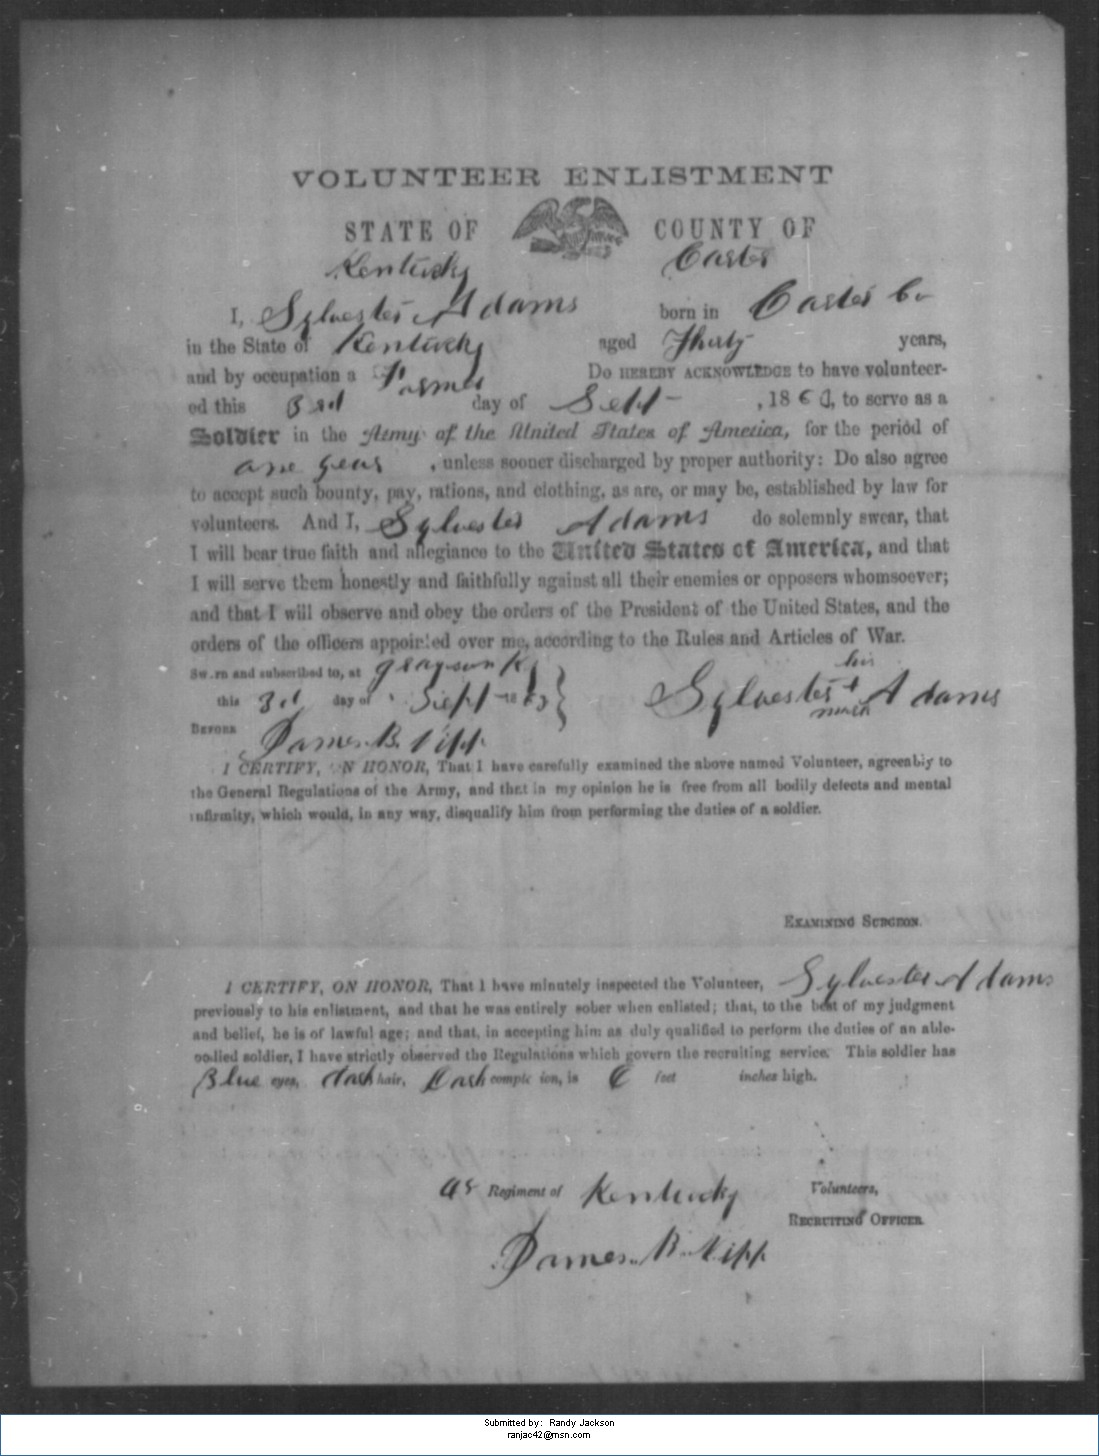 VOLUNTEER ENLISTMENT
STATE OF COUNTY OF
Kentucky Carter
I, Sylvester Adams born in Carter Co
in the State of Kentucky aged Thirty years,
and by occupation a Farmer Do HEREBY ACKNOWLEDGE to have volunteer-
ed this 3rd day of Sept , 186 , to serve as a
Soldier in the Army of the United States of America, for the period of
one year , unless sooner discharged by proper authority: Do also agree
to accept such bounty, pay, rations, and clothing, as are, or may be, established by law for
volunteers. And I, Sylvester Adams do solemnly swear, that
I will bear true faith and allegiance to the United States of America, and that
I will serve them honestly and faithfully against all their enemies or opposers whomsoever;
and that I will observe and obey the orders of the President of the United States, and the
orders of the officers appointed over me, according to the Rules and Articles of War.
Sworn and subscribed to, at Grayson Ky
his
this 3d day of Sept 1863 } Sylvester + Adams
mark
BEFORE James B. Nipp
I CERTIFY, ON HONOR, That I have carefully examined the above named Volunteer, agreeably to
the General Regulations of the Army, and that in my opinion he is free from all bodily defects and mental
infirmity, which would, in any way, disqualify him from performing the duties of a soldier.
EXAMINING SURGEON.
I CERTIFY, ON HONOR, That I have minutely inspected the Volunteer, Sylvester Adams
previously to his enlistment, and that he was entirely sober when enlisted; that, to the best of my judgment
and belief, he is of lawful age; and that, in accepting him as duly qualified to perform the duties of an able-
bodied soldier, I have strictly observed the Regulations which govern the recruiting service. This soldier has
Blue eyes, dark hair, Dark complexion, is 6 feet inches high.
Regiment of Kentucky Volunteers,
RECRUITING OFFICER.
James B. Nipp
Submitted by: Randy Jackson
ranjac42@msn.com